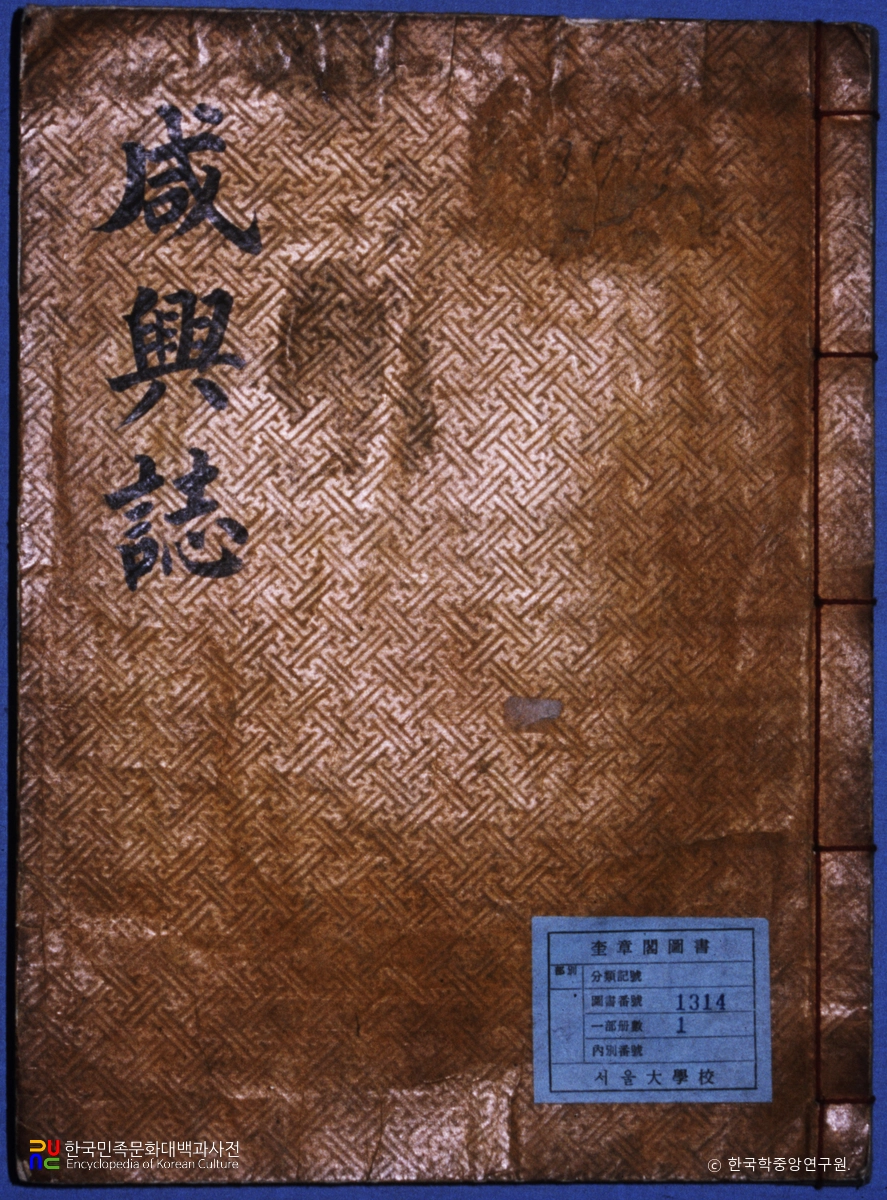 咸興誌
奎章閣圖書
分類記號
圖書番號 1314
一部冊數 1
內別番號
서울大學校
한국민족문화대백과사전
Encyclopedia of Korean Culture
© 한국학중앙연구원.